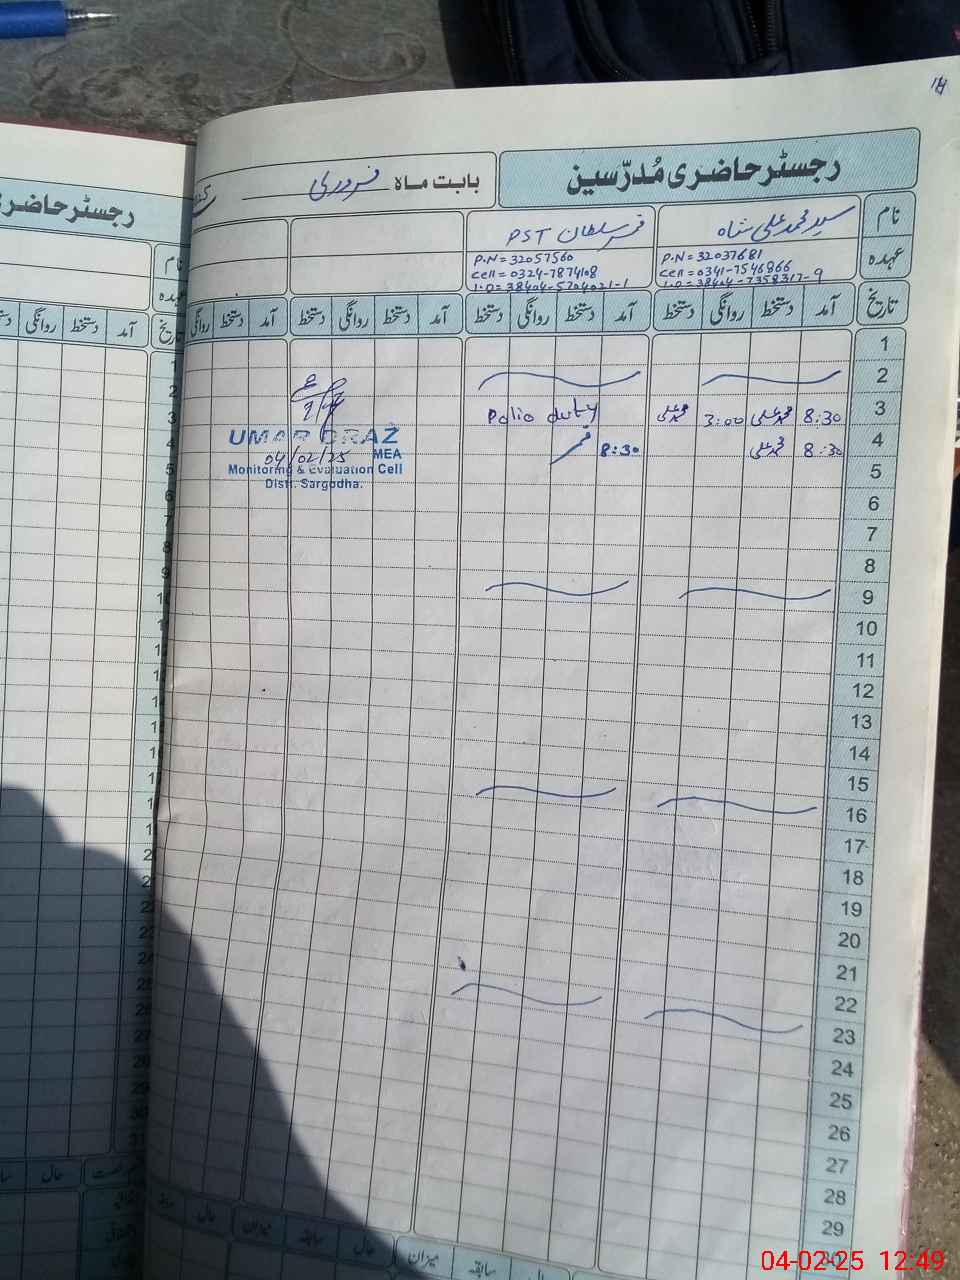 رجسٹر حاضری مُدرّسین
بابت ماہ فروری
نام
سید محمد علی شاہ
قمر سلطان PST
عہدہ
P.N = 32037681
Cell = 0341-7546966
P.N = 32057560
Cell = 0324-7874108
تاریخ
آمد دستخط روانگی دستخط
آمد دستخط روانگی دستخط
آمد دستخط روانگی دستخط
آمد دستخط روانگی
1
2
3 8:30 محمد علی 3:00 محمد علی Polio duty
4 8:30 محمد علی 8:30 قمر
5
6
7
8
9
10
11
12
13
14
15
16
17
18
19
20
21
22
23
24
25
26
27
28
29
30
UMAR DRAZ
04/02/25 MEA
Monitoring & Evaluation Cell
Distt. Sargodha.
میزان سابقہ حال
میزان سابقہ حال
رجسٹر حاضری
نام
عہدہ
تاریخ
آمد دستخط روانگی دستخط
04-02-25 12:49